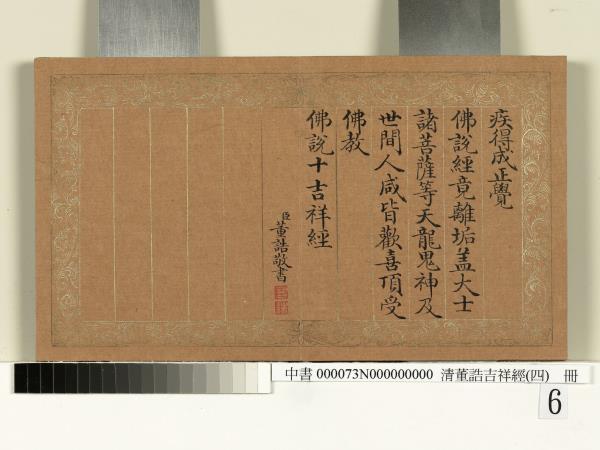 疾得成正覺
佛說經竟離垢盖大士
諸菩薩等天龍鬼神及
世間人咸皆歡喜頂受
佛教
佛說十吉祥經
臣董誥敬書
中書 000073N000000000 清董誥吉祥經(四) 冊
6